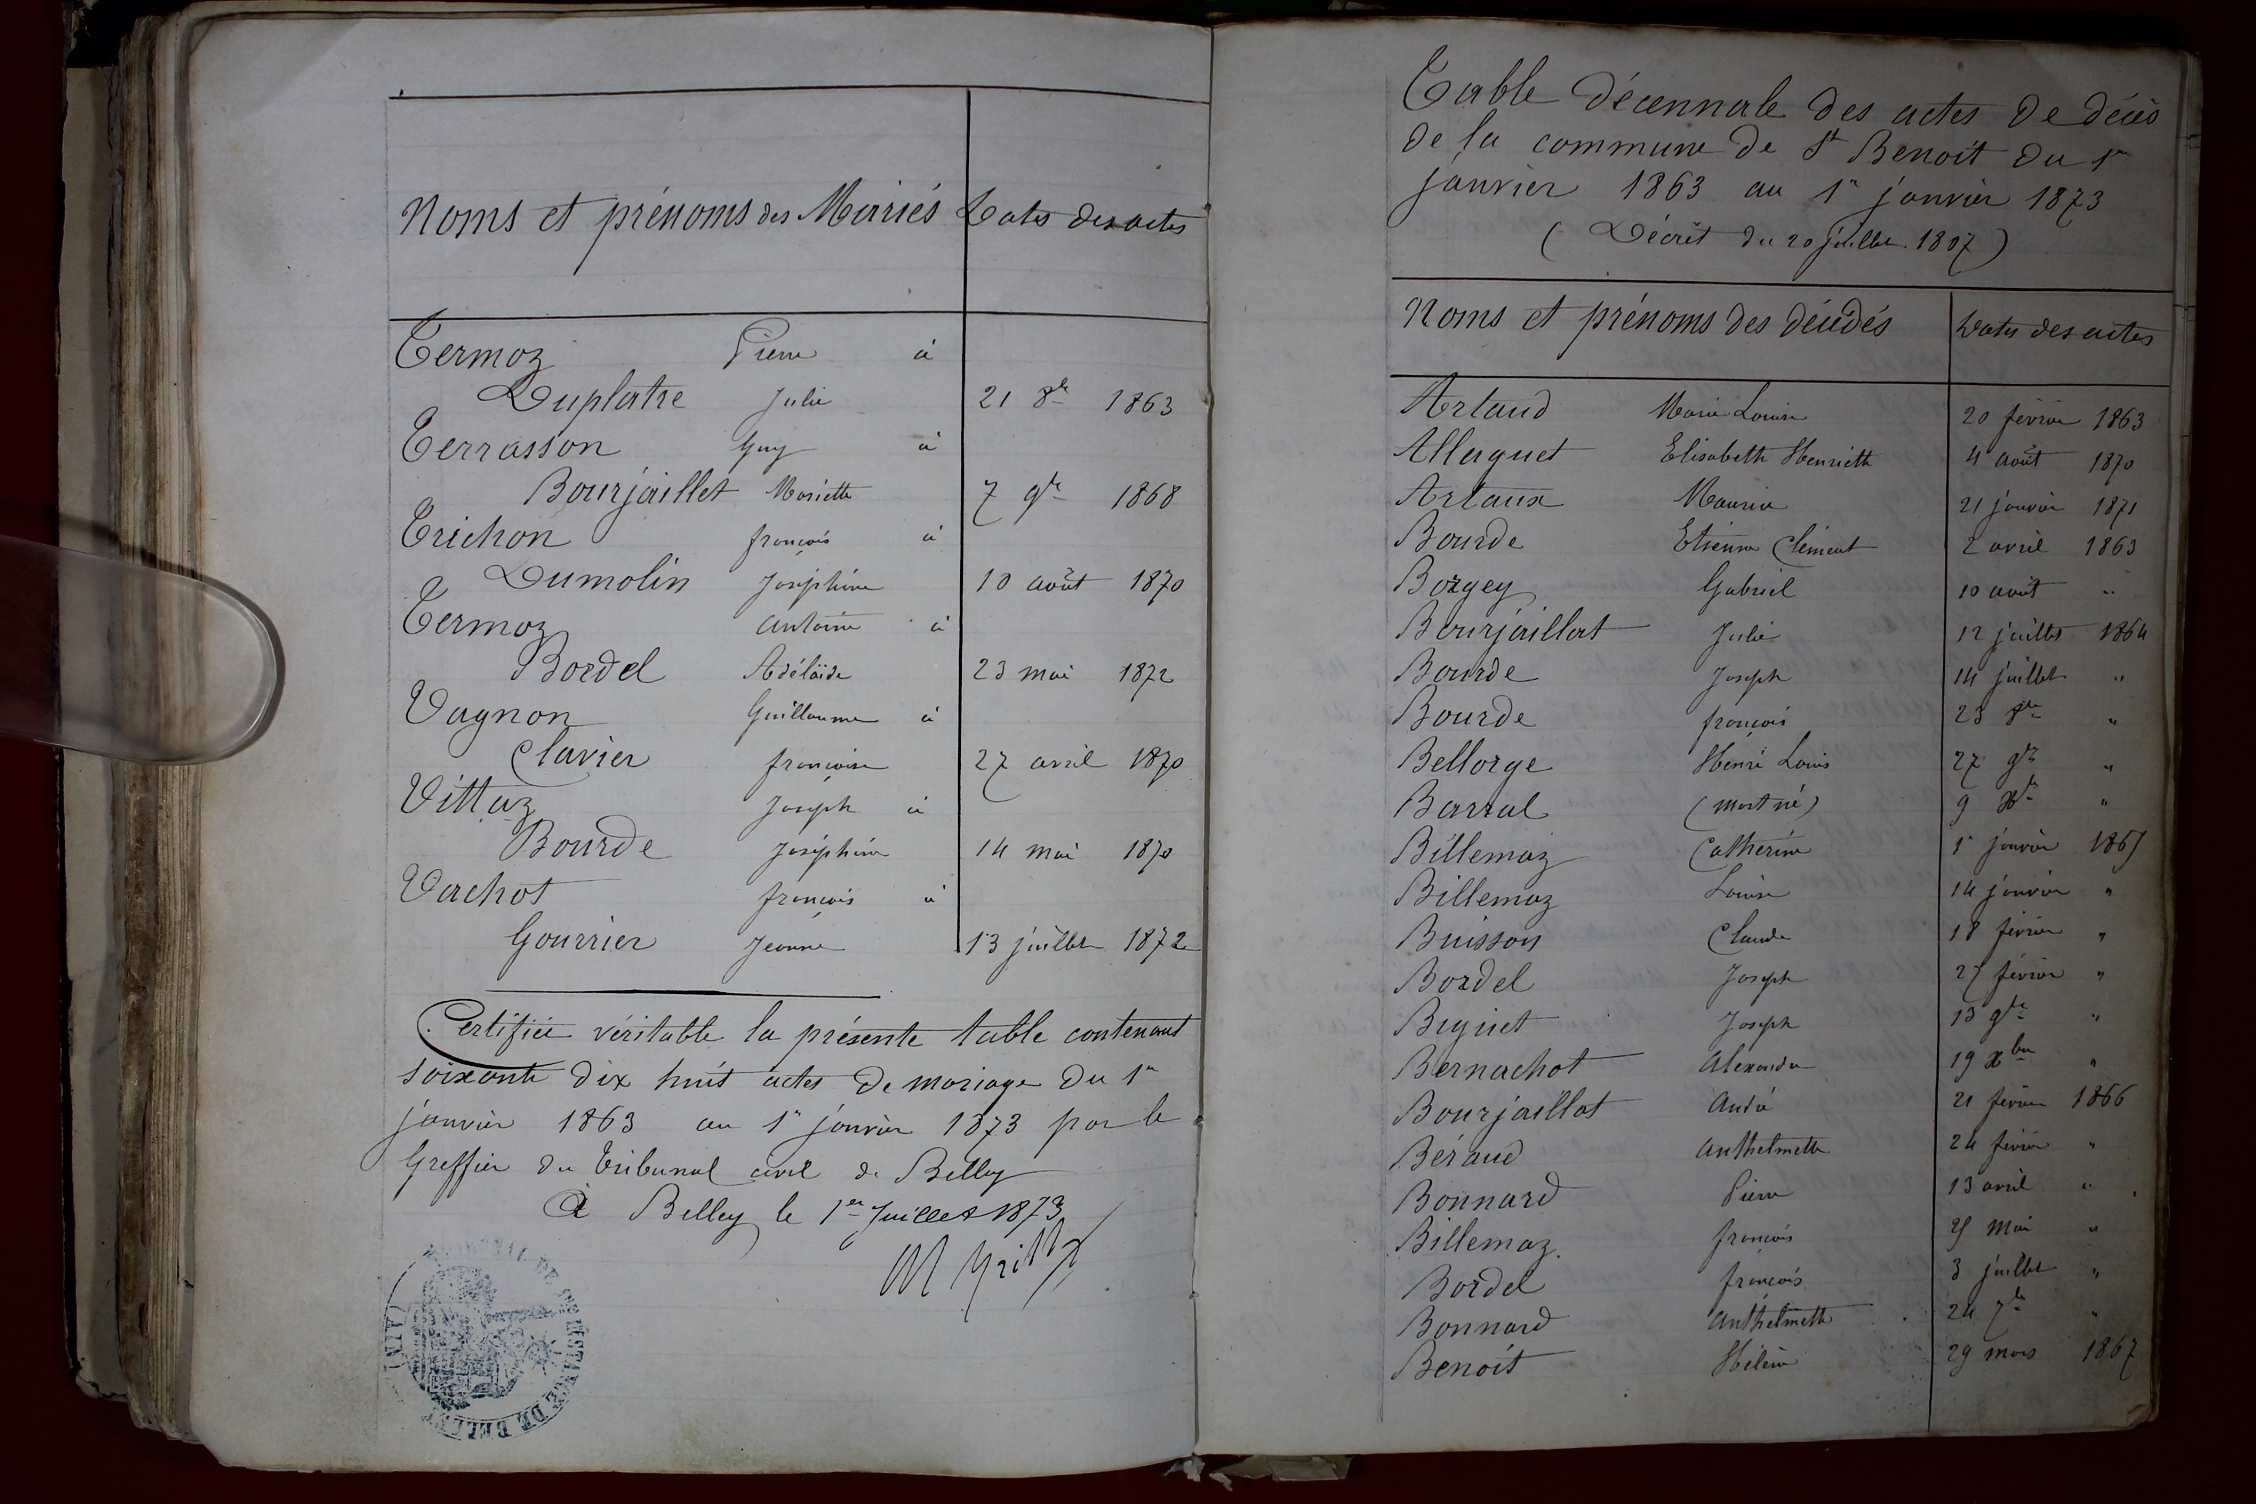 Noms et prénoms des Mariés Dates des actes
Termoz Pierre à
Duplatre Julie 21 8bre 1863
Terrasson Guy à
Bourjaillet Mariette 7 9bre 1868
Trichon françois à
Dumolin Joséphine 10 août 1870
Termoz Antoine à
Bordel Adélaïde 23 mai 1872
Vagnon Guillaume à
Clavier françoise 27 avril 1870
Vittaz Joseph à
Bourde Joséphine 14 mai 1870
Vachot françois à
Gourrier Jeanne 13 juillet 1872
Certifiée véritable la présente table contenant
soixante dix huit actes de mariage du 1er
janvier 1863 au 1er janvier 1873 par le
Greffier du tribunal civil de Belley
A Belley le 1er Juillet 1873
Table décennale des actes de décès
de la commune de St Benoit du 1er
janvier 1863 au 1er janvier 1873
(Décret du 20 juillet 1807)
Noms et prénoms des décédés Dates des actes
Artaud Marie Louise 20 février 1863
Allaguet Elisabeth Henriette 4 août 1870
Artaux Maurice 21 janvier 1871
Bourde Etienne Clément 2 avril 1863
Borgey Gabriel 10 août "
Bourjaillat Julie 12 juillet 1864
Bourde Joseph 14 juillet "
Bourde françois 23 8bre "
Bellorge Henri Louis 27 9bre "
Barral (mort né) 9 xbre "
Billemaz Catherine 1er janvier 1865
Billemaz Louise 14 janvier "
Buisson Claude 18 février "
Bordel Joseph 27 février "
Buguet Joseph 13 9bre "
Bernachot Alexandre 19 xbre "
Bourjaillat André 21 février 1866
Béraud Anthelmette 24 février "
Bonnard Pierre 13 avril "
Billemaz françois 25 mai "
Bordel françois 3 juillet "
Bonnard Anthelmette 24 7bre "
Benoit Hélène 29 mars 1867